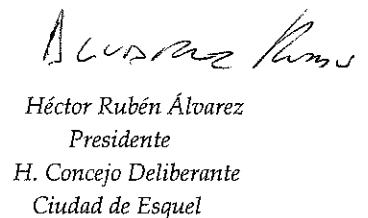 Alvarez Ruben
Héctor Rubén Álvarez
Presidente
H. Concejo Deliberante
Ciudad de Esquel